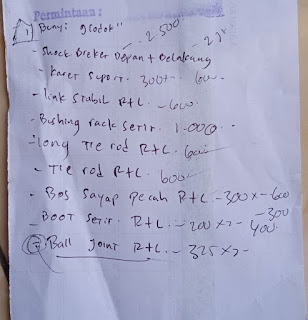 Permintaan :
1 Bunyi glodok"
- Shock Breker Depan + Belakang - 2.500
- karet suport. 300+ - 600
- link stabil R+L. - 600.
- Bushing rack setir. 1.000
- long Tie rod R+L. 600
- Tie rod R+L. 600
- Bos sayap pecah R+L - 300 x - 600
- Boot setir. R+L. - 200 x 2 - 300
400.
2 Ball joint R+L. - 325 x 2 -